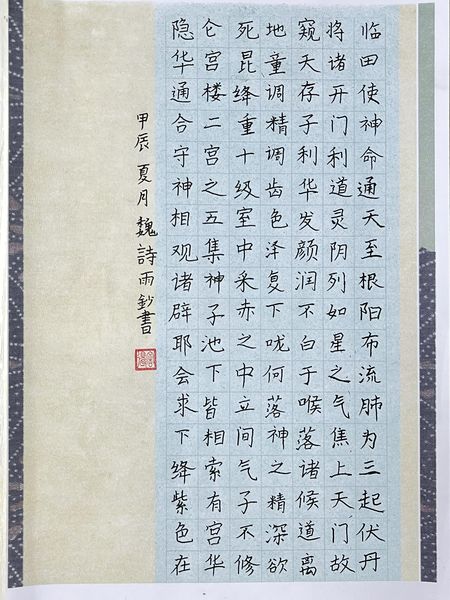 临田使神命通天至根阳布流肺为三起伏丹
将诸开门利道灵阴列如星之气焦上天门故
窥天存子利华发颜润不白于喉落诸候道离
地童调精调齿色泽复下咙何落神之精深欲
死昆绛重十级室中采赤之中立间气子不修
仑宫楼二宫之五集神子池下皆相索有宫华
隐华通合守神相观诸辟耶会求下绛紫色在
甲辰夏月魏詩雨鈔書